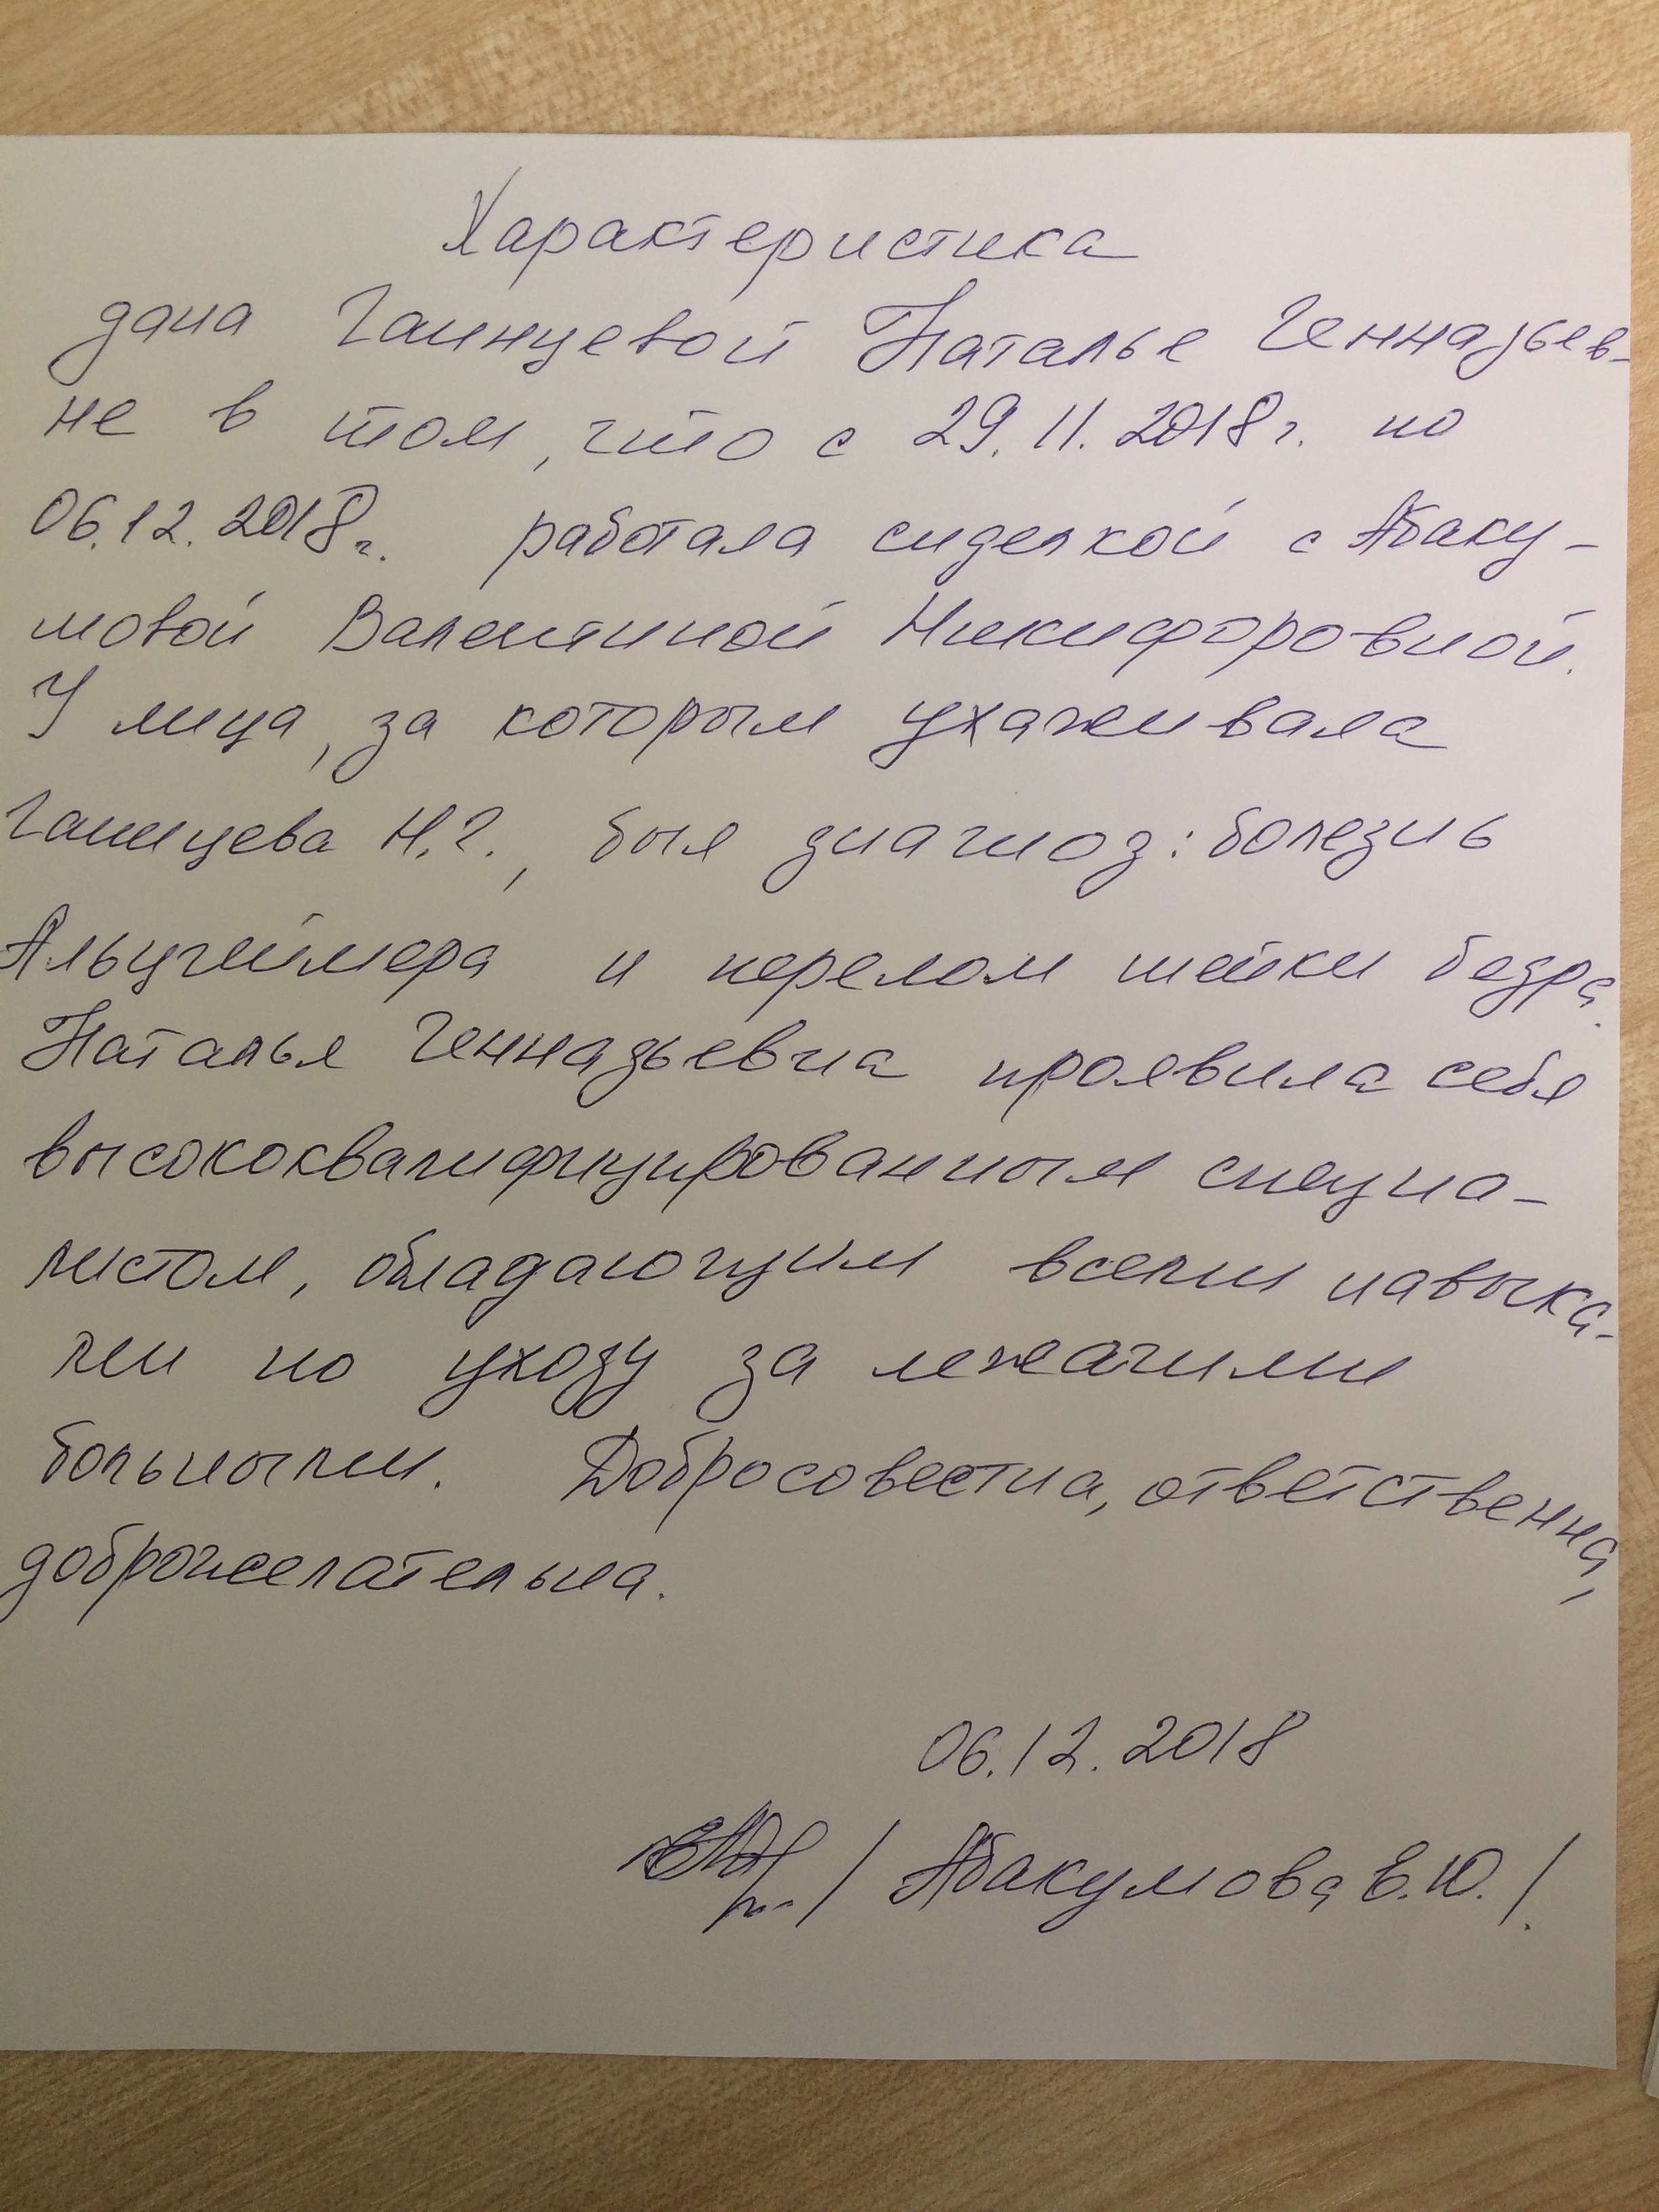 Характеристика
дана Гаинцевой Наталье Геннадьев-
не в том, что с 29.11.2018г. по
06.12.2018г. работала сиделкой с Абаку-
мовой Валентиной Никифоровной.
У лица, за которым ухаживала
Гаинцева Н.Г., был диагноз: болезнь
Альцгеймера и перелом шейки бедра.
Наталья Геннадьевна проявила себя
высококвалифицированным специа-
листом, обладающим всеми навыка-
ми по уходу за лежачими
больными. Добросовестна, ответственна,
доброжелательна.
06.12.2018
/ Абакумова Е.Ю. /